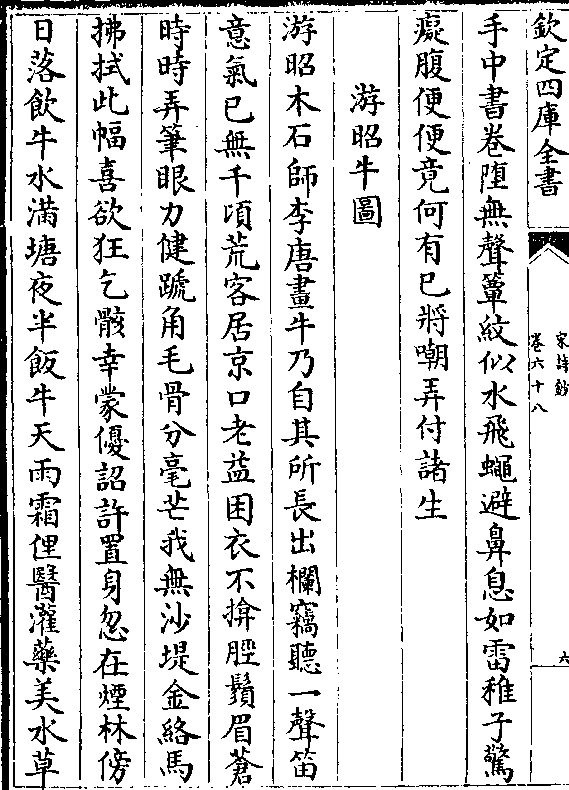 欽定四庫全書
宋詩鈔
卷六十八
六
手中書卷墮無聲簟紋似水飛蠅避鼻息如雷稚子驚
癡腹便便竟何有已將嘲弄付諸生
游昭牛圖
游昭木石師李唐畫牛乃自其所長出欄竊聽一聲笛
意氣已無千頃荒客居京口老益困衣不揜脛鬚眉蒼
時時弄筆眼力健蹏角毛骨分毫芒我無沙堤金絡馬
拂拭此幅喜欲狂乞骸幸蒙優詔許置身忽在煙林傍
日落飲牛水滿塘夜半飯牛天雨霜俚醫灌藥美水草